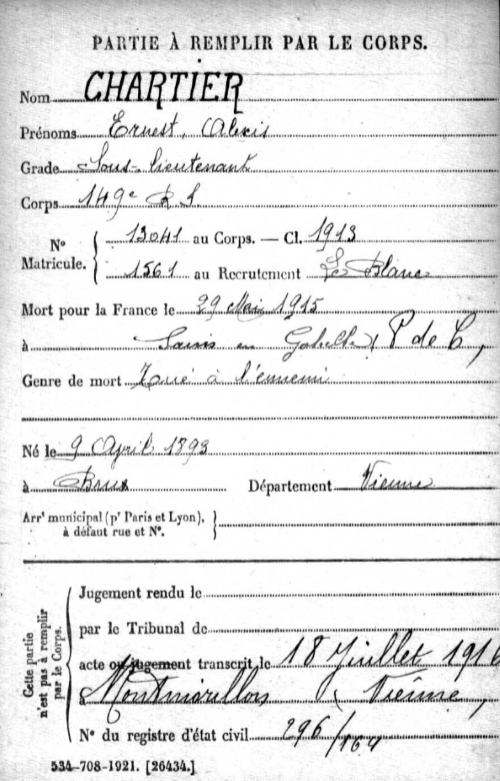 PARTIE À REMPLIR PAR LE CORPS.
Nom CHARTIER
Prénoms Ernest, Alexis
Grade Sous-lieutenant
Corps 149e R I.
No Matricule. 13041 au Corps. — Cl. 1913
1561 au Recrutement Le Blanc
Mort pour la France le 29 Mai 1915
à Sains en Gohelle (P de C,
Genre de mort Tué à l'ennemi
Né le 9 Avril 1893
à Brux Département Vienne
Arrt municipal (pr Paris et Lyon), à défaut rue et No.
Cette partie n'est pas à remplir par le Corps.
Jugement rendu le
par le Tribunal de
acte ou jugement transcrit le 18 Juillet 1916
à Montmorillon (Vienne,
No du registre d'état civil 296/164
534-708-1921. [26434.]